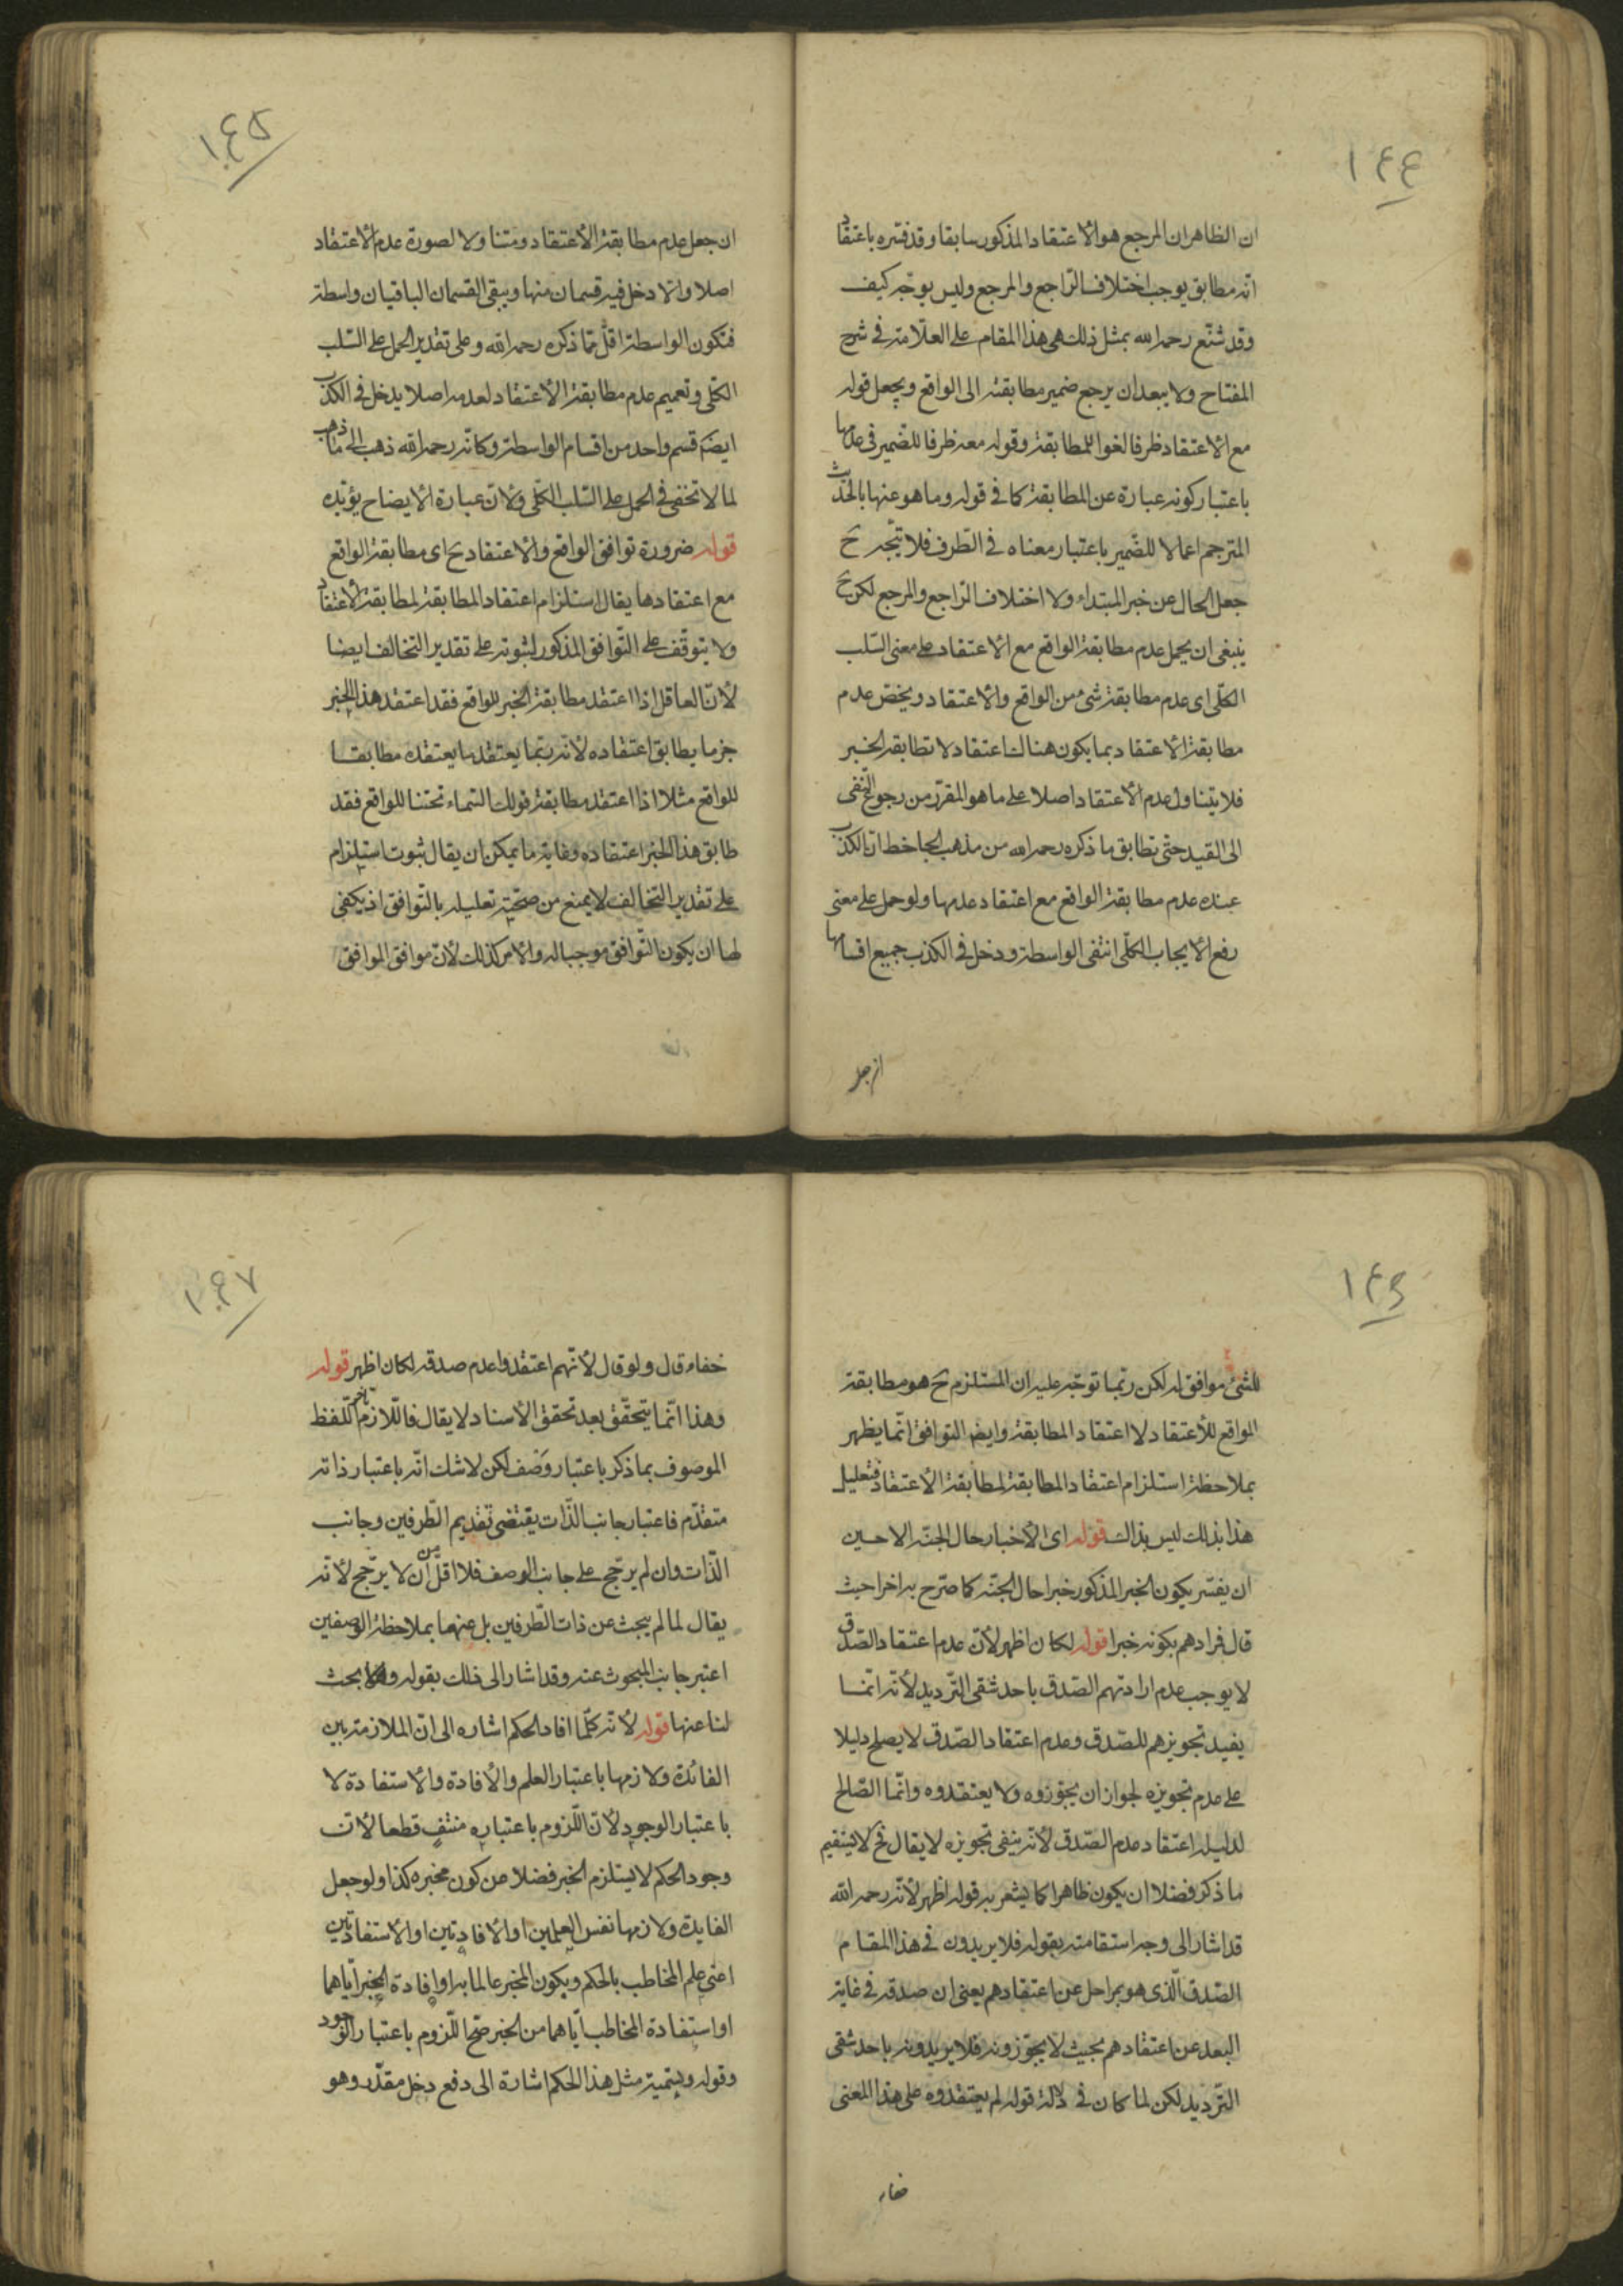 ١٤٤
ان الظاهر ان المرجع هو الاعتقاد المذكور سابقا وقد فسّره باعتقاد
انه مطابق يوجب اختلاف الرّاجع والمرجع وليس بوجه كيف
وقد شنّع رحمه الله بمثل ذلك فى هذا المقام على العلّامة فى شرح
المفتاح ولا يبعد ان يرجع ضمير مطابقته الى الواقع ويجعل قوله
مع الاعتقاد ظرفا لغوا للمطابقة وقوله معه ظرفا للضّمير فى عدمها
باعتبار كونه عبارة عن المطابقة كما فى قوله وما هو عنها بالحديث
المترجم اعمالا للضّمير باعتبار معناه فى الظّرف فلا يتّجه ح
جعل الحال عن خبر المبتداء ولا اختلاف الرّاجع والمرجع لكن ح
ينبغى ان يحمل عدم مطابقة الواقع مع الاعتقاد على معنى السّلب
الكلّى اى عدم مطابقة شىء من الواقع والاعتقاد ويخصّ عدم
مطابقة الاعتقاد بما يكون هناك اعتقاد لا تطابقه الخبر
فلا يتناول عدم الاعتقاد اصلا على ما هو المقرّر من رجوع النّفى
الى القيد حتّى تطابق ما ذكره رحمه الله من مذهب الجاحظ انّ الكذب
عنده عدم مطابقة الواقع مع اعتقاد عدمها ولو حمل على معنى
رفع الايجاب الكلّى انتفى الواسطة ودخل فى الكذب جميع اقسامها
ان جعل
١٤٥
ان جعل عدم مطابقة الاعتقاد ومتناولا لصورة عدم الاعتقاد
اصلا والا دخل فيه قسمان منها ويبقى القسمان الباقيان واسطة
فتكون الواسطة اقلّ ممّا ذكره رحمه الله وعلى تقدير الحمل على السّلب
الكلّى وتعميم عدم مطابقة الاعتقاد لعدمه اصلا يدخل فى الكذب
ايضا قسم واحد من اقسام الواسطة وكانّه رحمه الله ذهب الى ما ذهب
لما لا تخفى فى الحمل على السّلب الكلّى ولانّ عبارة الايضاح يؤيّده
قوله ضرورة توافق الواقع والاعتقاد ح اى مطابقة الواقع
مع اعتقادها يقال استلزام اعتقاد المطابقة لمطابقة الاعتقاد
ولا يتوقّف على التّوافق المذكور لثبوته على تقدير التخالف ايضا
لانّ العاقل اذا اعتقد مطابقة الخبر للواقع فقد اعتقد هذا الخبر
جزما يطابق اعتقاده لانّه ربّما يعتقد ما يعتقده مطابقا
للواقع مثلا اذا اعتقد مطابقة قولك السّماء تحتنا للواقع فقد
طابق هذا الخبر اعتقاده وغاية ما يمكن ان يقال ثبوت استلزام
على تقدير التخالف لا يمنع من صحّية تعليله بالتّوافق اذ يكفى
لها ان يكون التّوافق موجبا له والامر كذلك لانّ موافق الموافق
١٤٦
للشىء موافق له لكن ربّما توجّه عليه ان المستلزم ح هو مطابقة
الواقع للاعتقاد لا اعتقاد المطابقة وايضا التوافق انّما يظهر
بملاحظة استلزام اعتقاد المطابقة لمطابقة الاعتقاد فتعليل
هذا بذلك ليس بذاك قوله اى الاخبار حال الجنّة الاحسن
ان يفسّر بكون الخبر المذكور خبرا حال الجنّة كما صرّح به اخرا حيث
قال فمرادهم بكونه خبرا قوله لكان اظهر لانّ عدم اعتقاد الصّدق
لا يوجب عدم ارادتهم الصّدق باحد شقى التّرديد لانّه انّما
يفيد تجويزهم للصّدق وعدم اعتقاد الصّدق لا يصلح دليلا
على عدم تجويزه لجواز ان يجوّزوه ولا يعتقدوه وانّما الصّالح
لدليله اعتقاد عدم الصّدق لانّه ينفى تجويزه لا يقال فح لا يستقيم
ما ذكر فضلا ان يكون ظاهرا كما يشعر به قوله اظهر لانّه رحمه الله
قد اشار الى وجه استقامته بقوله فلا يريدون فى هذا المقام
الصّدق الّذى هو بمراحل عن اعتقادهم يعنى ان صدقه فى غاية
البعد عن اعتقادهم بحيث لا يجوّزونه فلا يريدونه باحد شقى
التّرديد لكن لما كان فى دلالة قوله لم يعتقدوه على هذا المعنى
خفاء
١٤٧
خفاء قال ولو قال لانّهم اعتقدوا عدم صدقه لكان اظهر قوله
وهذا انّما يتحقّق بعد تحقق الاسناد لا يقال فاللّازم تاخّر اللّفظ
الموصوف بما ذكر باعتبار وصف لكن لا شك انّه باعتبار ذاته
متقدّم فاعتبار جانب الذّات يقتضى تقديم الطّرفين وجانب
الذّات وان لم يرجّح على جانب الوصف فلا اقلّ من ان لا يرجّح لانّه
يقال لما لم يبحث عن ذات الطّرفين بل عنهما بملاحظة الوصفين
اعتبر جانب المبحوث عنه وقد اشار الى ذلك بقوله ولا بحث
لنا عنها قوله لانّه كلّما افاد الحكم اشاره الى انّ الملازمة بين
الفائدة ولازمها باعتبار العلم والافادة والاستفادة لا
باعتبار الوجود لانّ اللّزوم باعتباره منتف قطعا لانّ
وجود الحكم لا يستلزم الخبر فضلا من كون مخبره كذا ولو جعل
الفايدة ولازمها نفس العلمين او الافادتين او الاستفادتين
اعنى علم المخاطب بالحكم وبكون المخبر عالما به او افادة المخبر ايّاهما
او استفادة المخاطب ايّاهما من الخبر صحّ اللّزوم باعتبار الوجود
وقوله وبتسمية مثل هذا الحكم اشارة الى دفع دخل مقدّر وهو